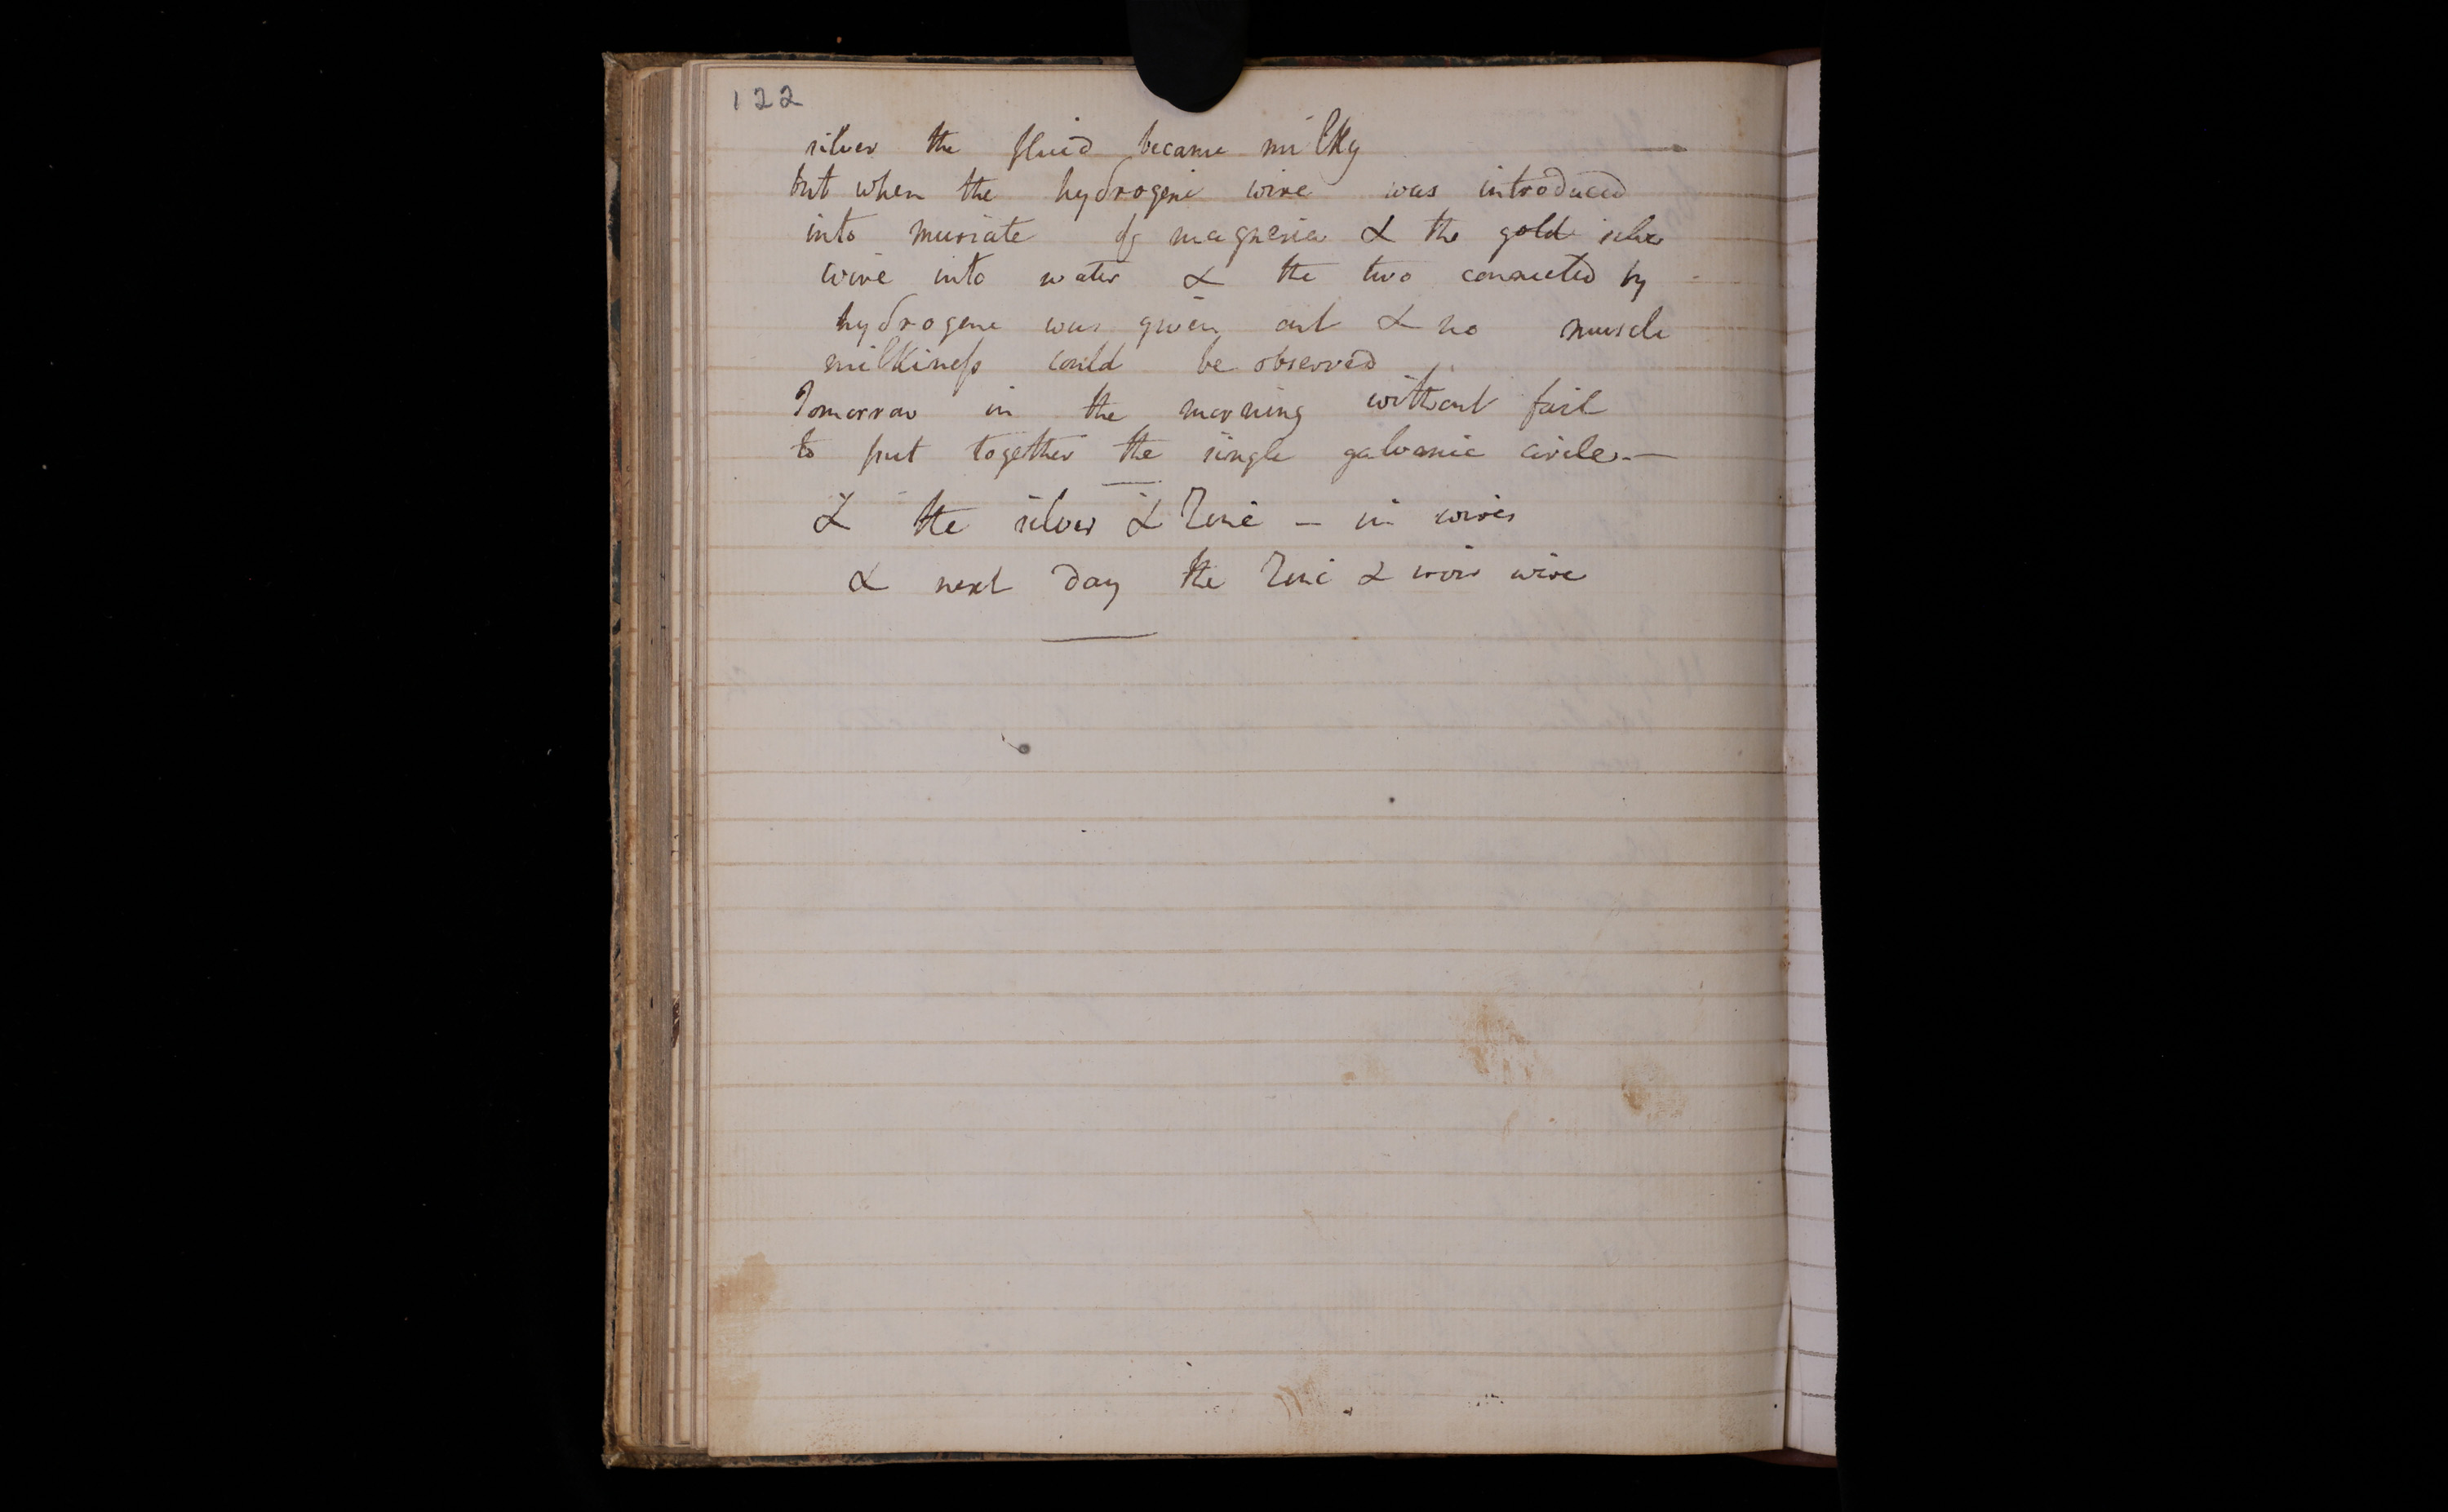 122
silver the fluid became milky —
but when the hydrogene wire was introduced
into muriate of magnesia & the gold silver
wire into water & the two connected by
hydrogene was given out & no muscle
milkiness could be observed
Tomorrow in the morning without fail
to put together the single galvanic circle. —
& the silver & Zinc – in wires
& next day the Zinc & iron wire